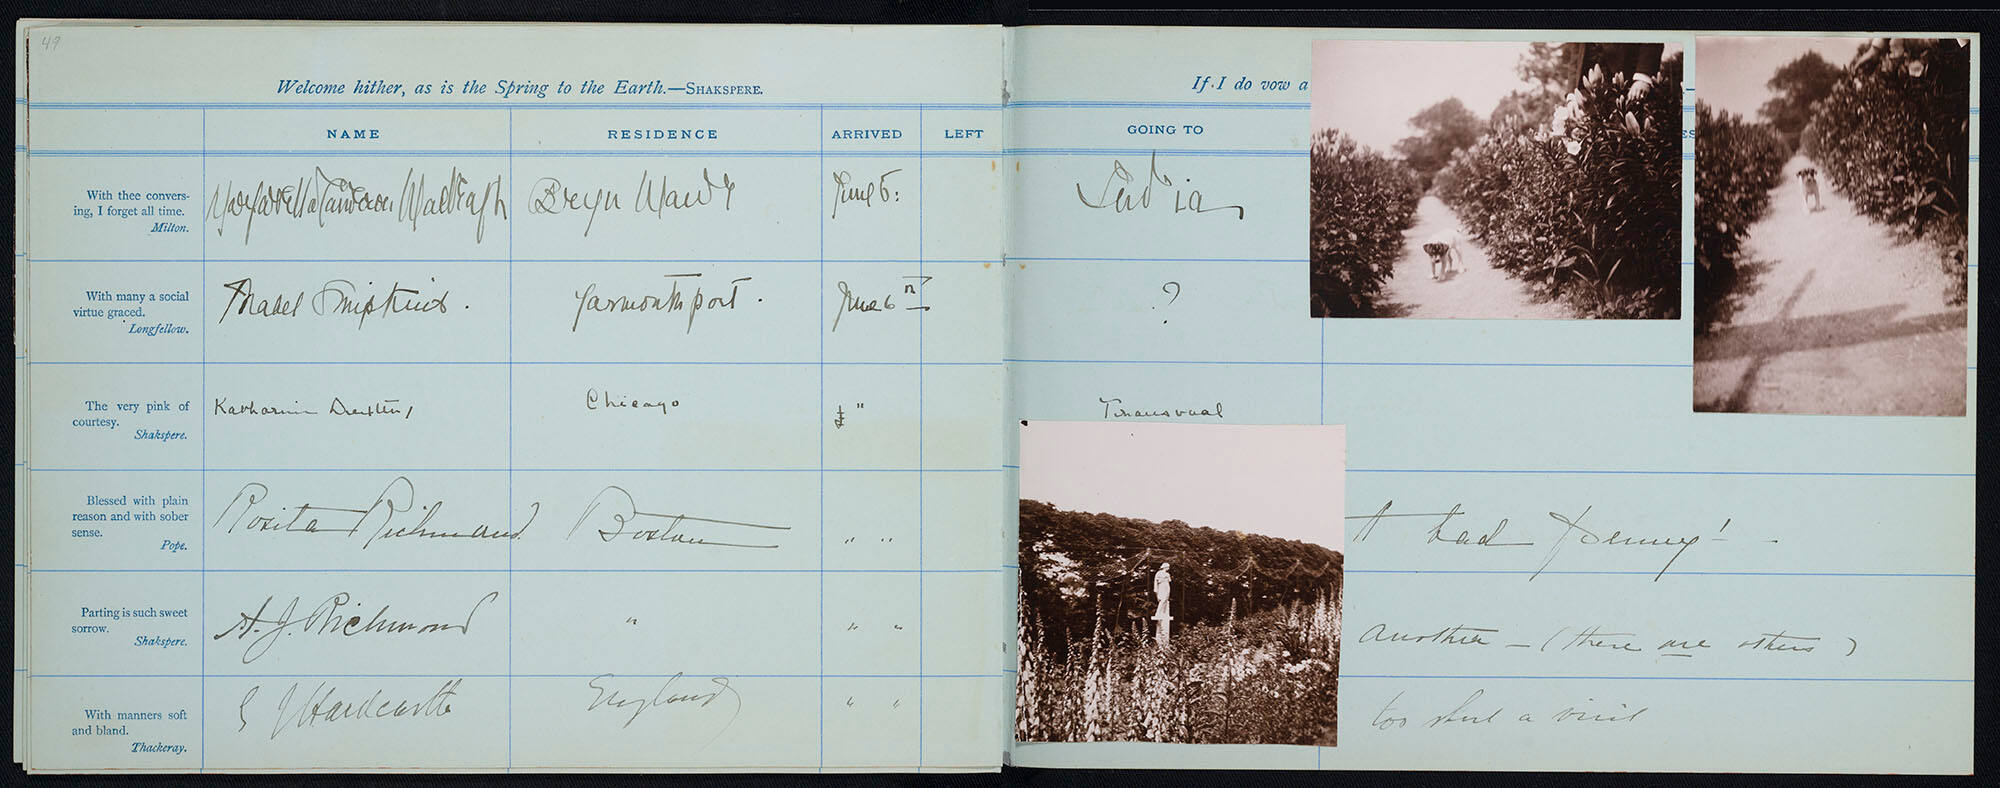 49
Welcome hither, as is the Spring to the Earth.—SHAKSPERE.
If I do vow a
NAME RESIDENCE ARRIVED LEFT GOING TO
With thee convers-
ing, I forget all time.
Milton.
Bryn Mawr June 5:
With many a social
virtue graced.
Longfellow.
Mabel Simpkins. Yarmouthport. June 6 ?
The very pink of
courtesy.
Shakspere.
Katharine Dexter, Chicago " Transvaal
Blessed with plain
reason and with sober
sense.
Pope.
Rosita Richmond. Boston " " A bad Penny! -
Parting is such sweet
sorrow.
Shakspere.
A. J. Richmond " " " another - (there are others)
With manners soft
and bland.
Thackeray.
J Hardcastle England " " too short a visit